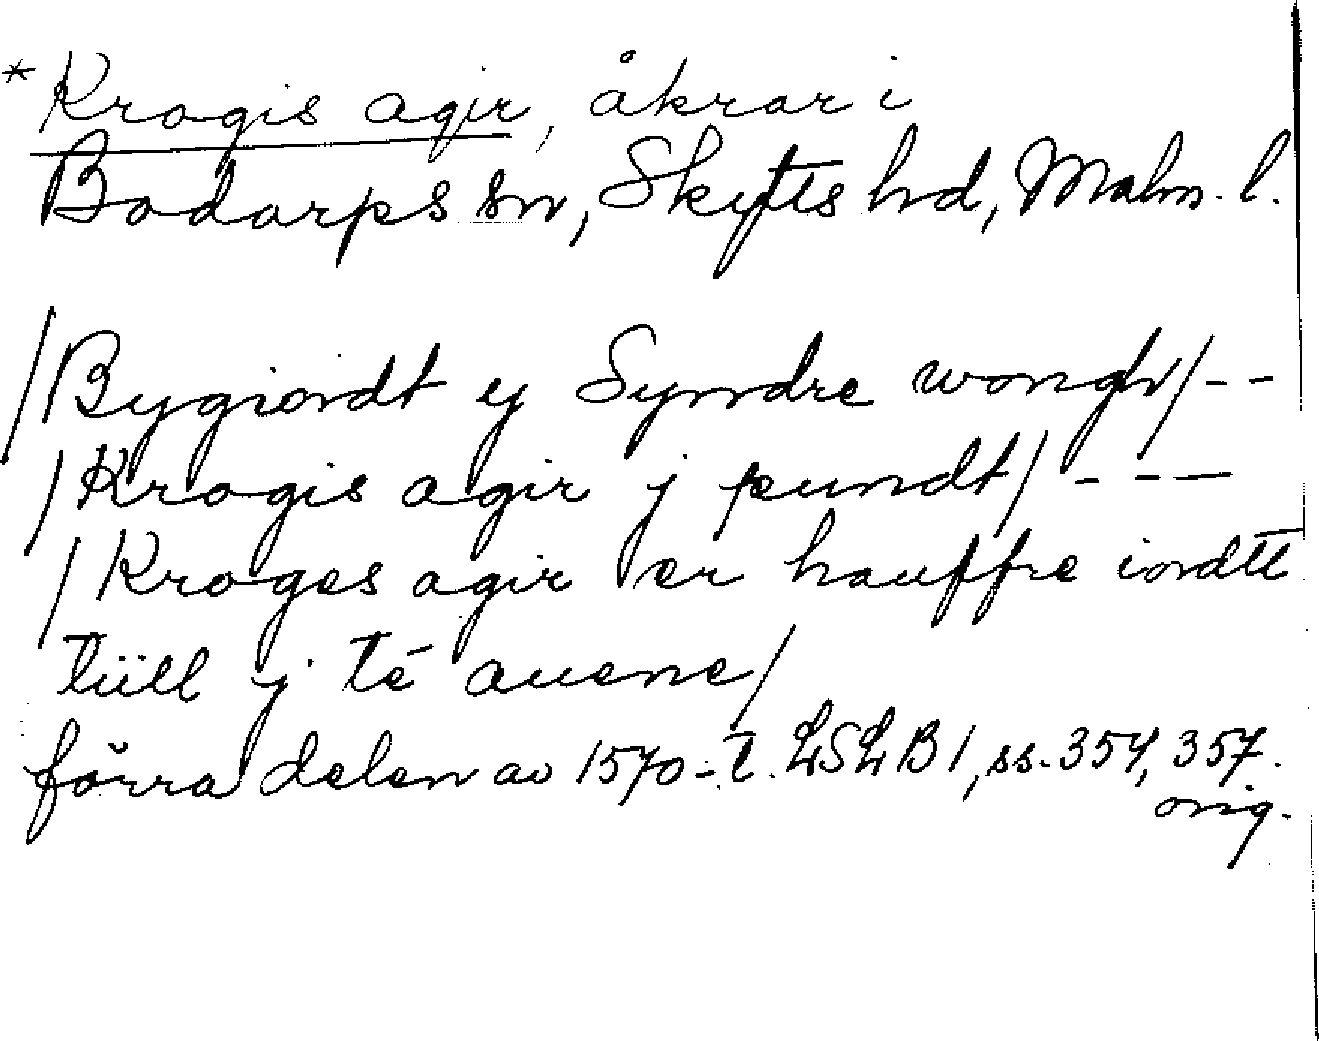 *Krogis agir, åkrar i
Bodarps sn, Skytts hd, Malm. l.
/Bygiordt ej Syndre wongh/ - -
/Krogis agir j pundt/ - - -
/Kroges agir er hauffre iordtt
tüll j té auene/
förra delen av 1570-t. LSLB1, ss. 354, 357.
orig.